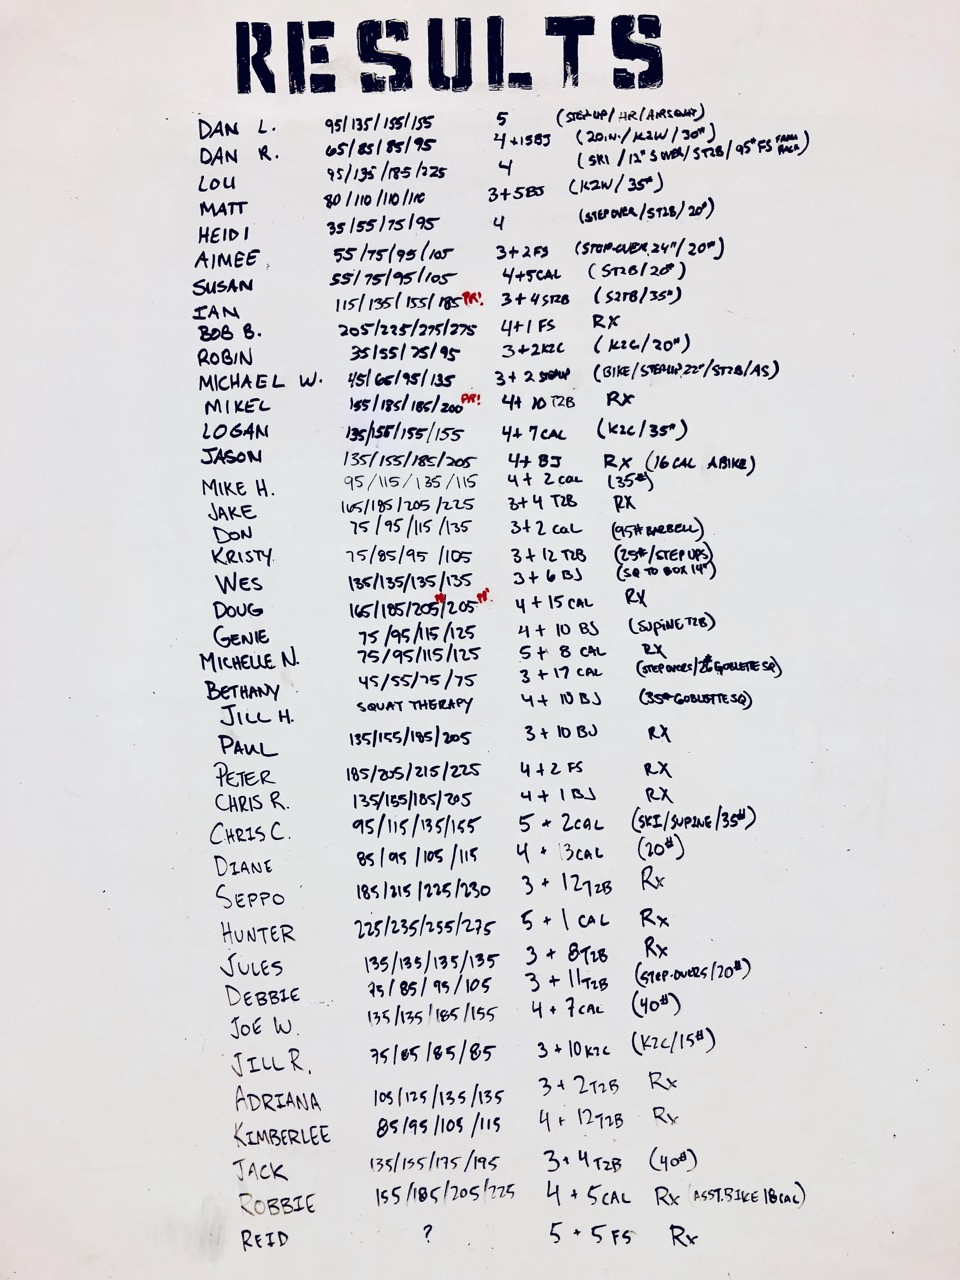 RESULTS
DAN L. 95/135/155/155 5 (STEP UP/HR/AIRSQUAT)
DAN R. 65/85/85/95 4+15BJ (20IN./K2W/30#)
LOU 95/135/185/225 4 (SKI/12" S OVER/ST2B/95# FS FROM RACK)
MATT 80/110/110/110 3+5BJ (K2W/35#)
HEIDI 35/55/75/95 4 (STEPOVER/ST2B/20#)
AIMEE 55/75/95/105 3+2FS (STEP-OVER 24"/20#)
SUSAN 55/75/95/105 4+5CAL (ST2B/20#)
IAN 115/135/155/185 PR! 3+4ST2B (S2TB/35#)
BOB B. 205/225/275/275 4+1 FS RX
ROBIN 35/55/75/95 3+2K2C (K2C/20#)
MICHAEL W. 45/65/95/135 3+2 STEPUP (BIKE/STEPUP 22"/ST2B/AS)
MIKEL 155/185/185/200 PR! 4+10 T2B RX
LOGAN 135/155/155/155 4+7CAL (K2C/35#)
JASON 135/155/185/205 4+BJ RX (16 CAL ABIKE)
MIKE H. 95/115/135/115 4+2 CAL (35#)
JAKE 165/185/205/225 3+4 T2B RX
DON 75/95/115/135 3+2 CAL (95# BARBELL)
KRISTY 75/85/95/105 3+12 T2B (25#/STEP UPS)
WES 135/135/135/135 3+6 BJ (SQ TO BOX 14")
DOUG 165/185/205/205 4+15 CAL RX
GENIE 75/95/115/125 4+10 BJ (SUPINE T2B)
MICHELLE N. 75/95/115/125 5+8 CAL RX
BETHANY 45/55/75/75 3+17 CAL (STEPOVERS/26# GOBLETE SQ)
JILL H. SQUAT THERAPY 4+10 BJ (35# GOBLETTE SQ)
PAUL 135/155/185/205 3+10 BJ RX
PETER 185/205/215/225 4+2 FS RX
CHRIS R. 135/155/185/205 4+1 BJ RX
CHRIS C. 95/115/135/155 5+2CAL (SKI/SUPINE/35#)
DIANE 85/95/105/115 4+13CAL (20#)
SEPPO 185/215/225/230 3+12T2B Rx
HUNTER 225/235/255/275 5+1 CAL Rx
JULES 135/135/135/135 3+8T2B Rx
DEBBIE 75/85/95/105 3+11T2B (STEP-OVERS/20#)
JOE W. 135/135/185/155 4+7CAL (40#)
JILL R. 75/85/85/85 3+10K2C (K2C/15#)
ADRIANA 105/125/135/135 3+2T2B Rx
KIMBERLEE 85/95/105/115 4+12T2B Rx
JACK 135/155/175/195 3+4T2B (40#)
ROBBIE 155/185/205/225 4+5CAL Rx (ASST.BIKE 18CAL)
REID ? 5+5FS Rx